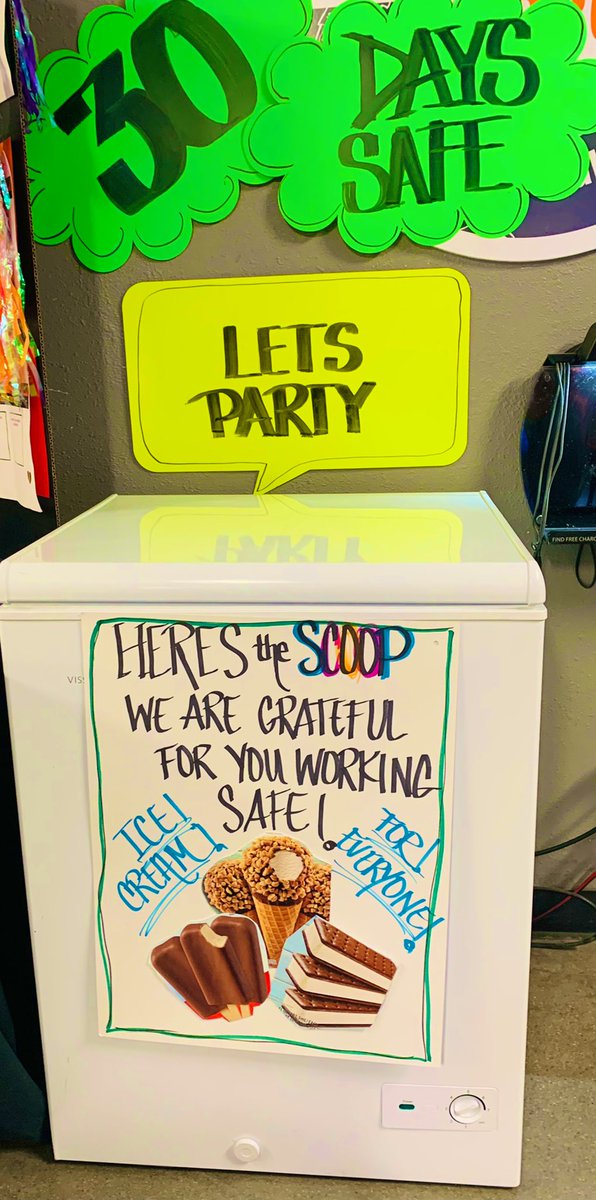 30
DAYS
SAFE
LETS
PARTY
HERES the SCOOP
WE ARE GRATEFUL
FOR YOU WORKING
SAFE!
ICE!
CREAM!
FOR!
EVERYONE!
FIND FREE CHARG